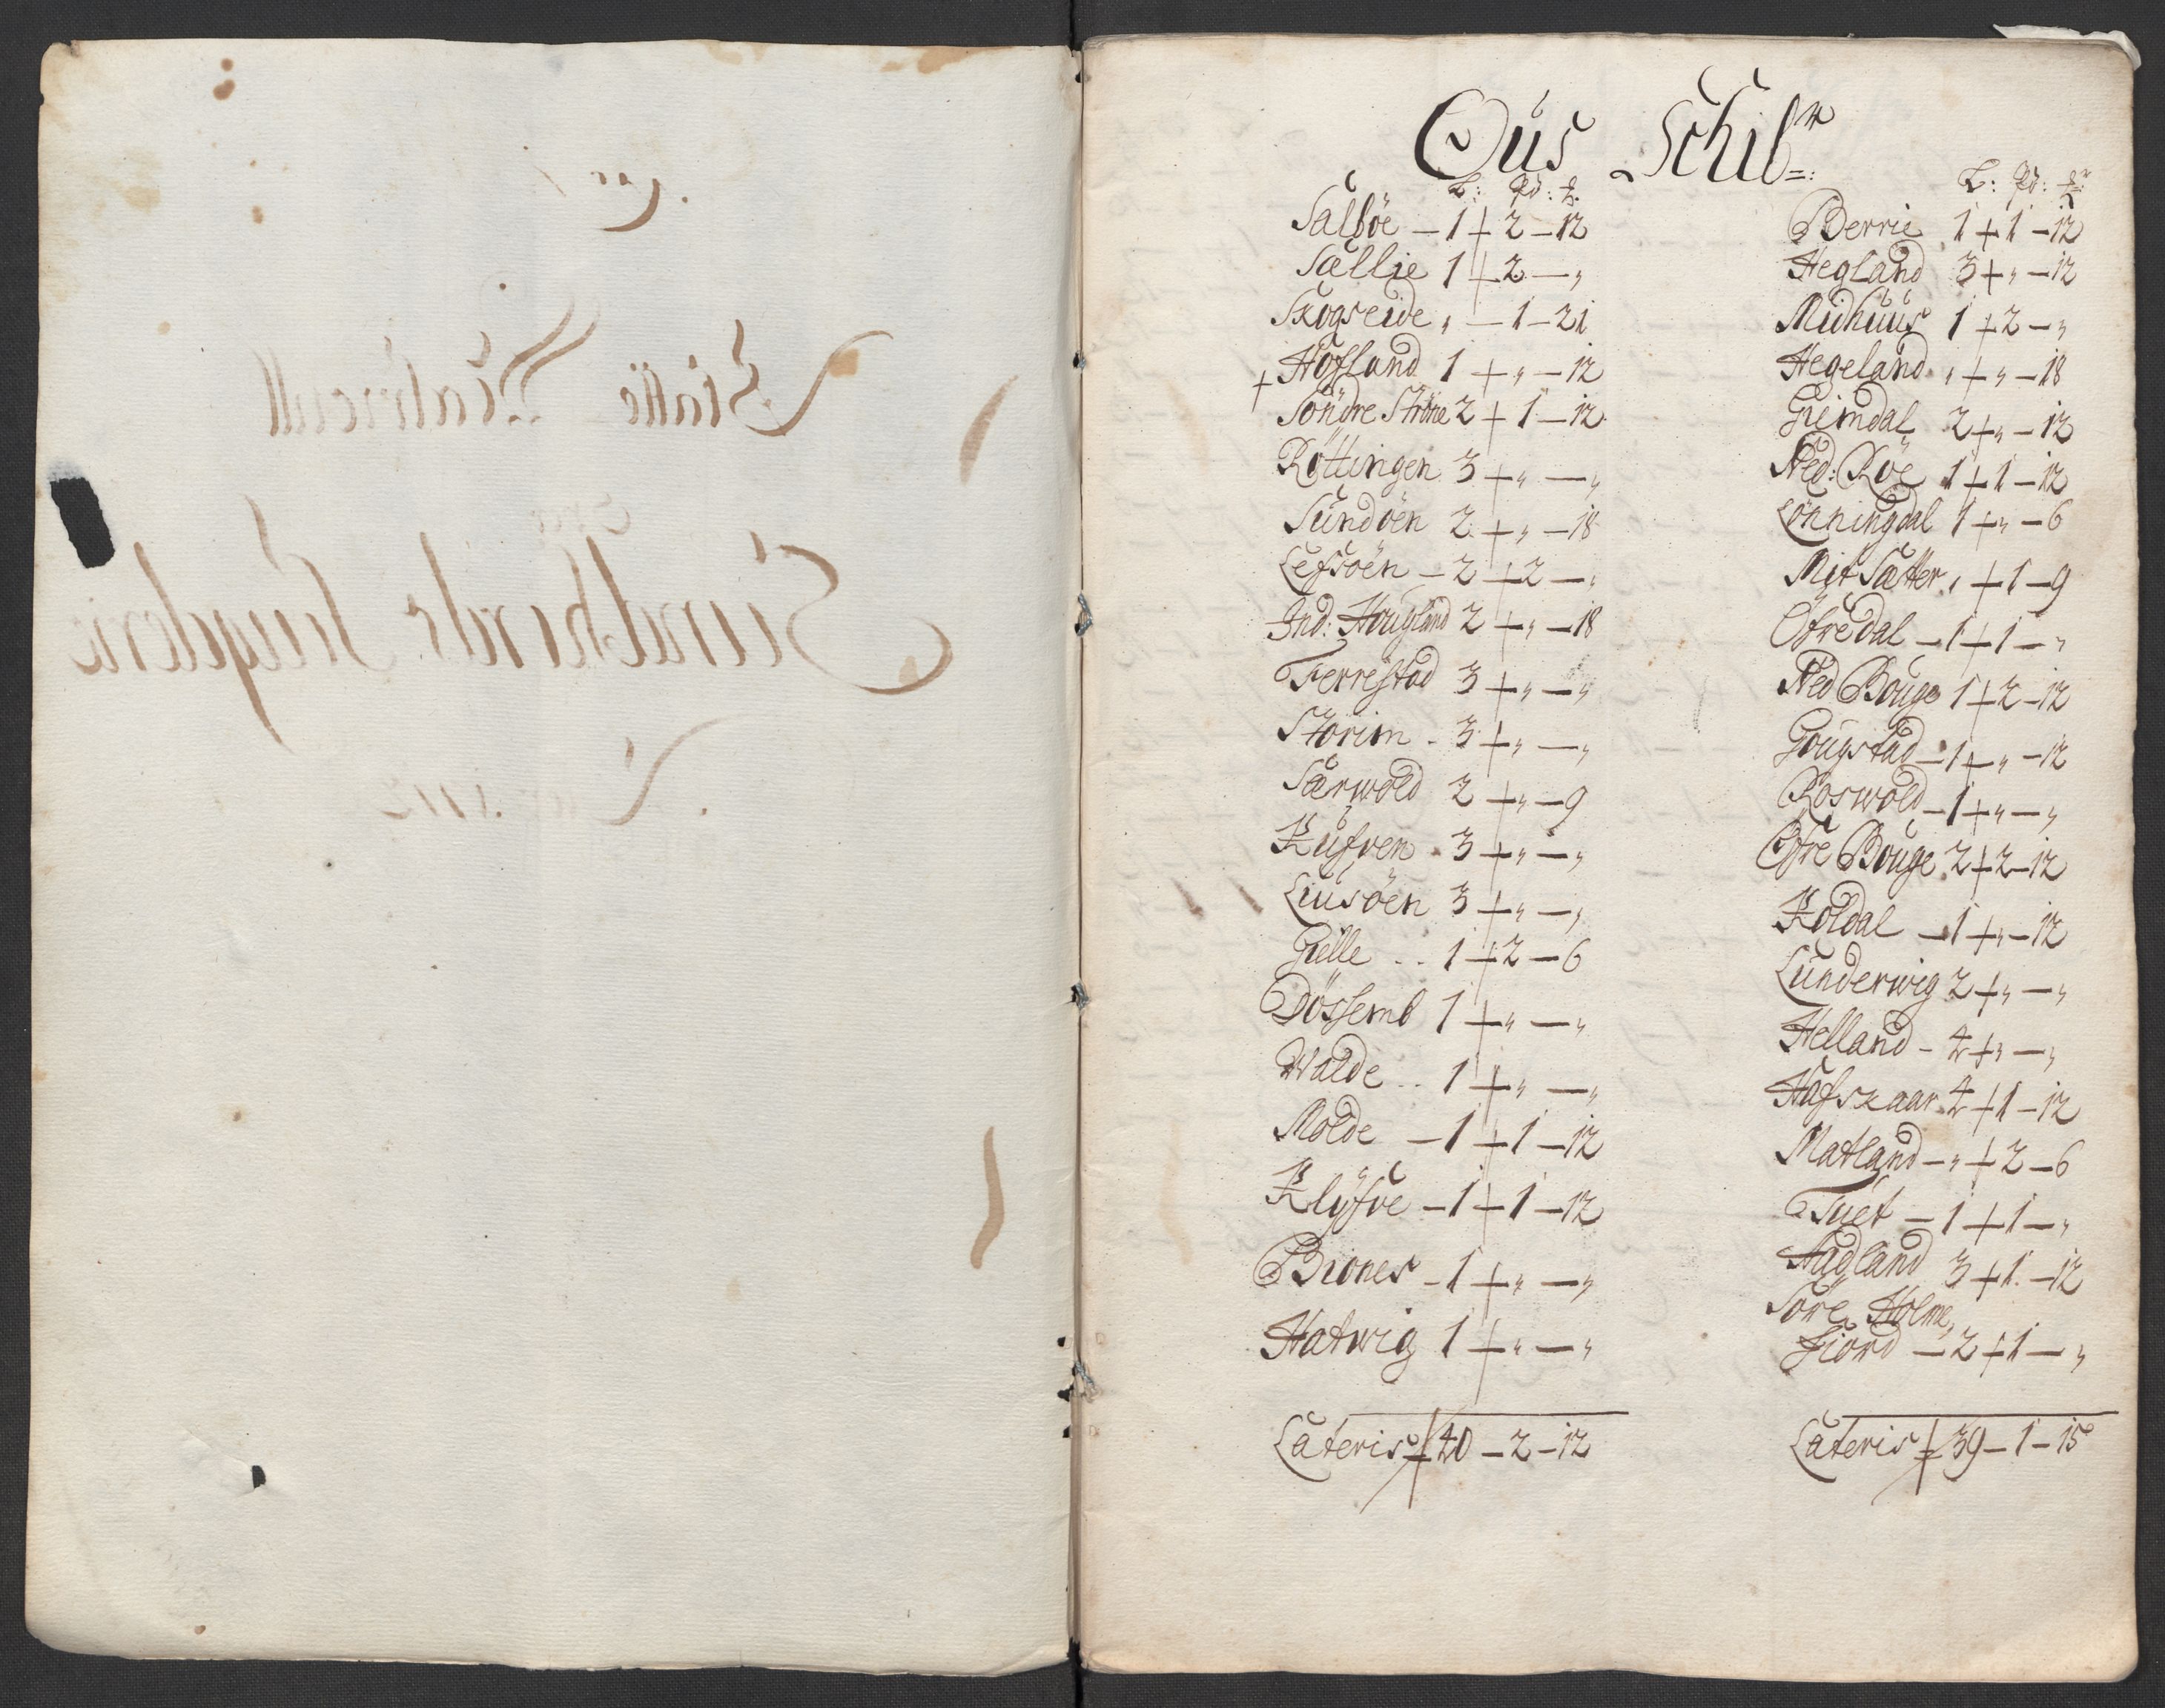 Ous Schibr:
L: Pd: ℔.
Salböe – 1 + 2 – 12
Sællie 1 + 2 – „
Skogseide „ – 1 – 21
Hofland 1 + „ – 12
+ Söndre Ströne 2 + 1 – 12
Röttingen 3 + „ – „
Sundöen 2 + „ – 18
Lefsöen – 2 + 2 – „
Ind: Hougland 2 + „ – 18
Ferrestad 3 + „ – „
Storim 3 + „ – „
Særwold 2 + „ – 9
Kufven 3 + „ – „
Liusöen 3 + „ – „
Gielle 1 + 2 – 6
Dössemb 1 + „ – „
Walde 1 + „ – „
Molde – 1 + 1 – 12
Klyfve – 1 + 1 – 12
Biones – 1 + „ – „
Hatwig 1 + „ – „
Lateris 40 – 2 – 12
L: Pd: ℔r
Berrie 1 + 1 – 12
Hegland 3 + „ – 12
Midhuus 1 + 2 – „
Hegeland „ + „ – 18
Giemdal 2 + „ – 12
Ned: Röe 1 + 1 – 12
Lönningdal 1 + „ – 6
Mit Sætter „ + 1 – 9
Öfredal – 1 + 1 – „
Ned Bouge 1 + 2 – 12
Gougstad – 1 + „ – 12
Röswold – 1 + „ – „
Öfre Bouge 2 + 2 – 12
Koldal – 1 + „ – 12
Lunderwig 2 + „ – „
Helland – 4 + „ – „
Hafskaar 4 + 1 – 12
Matland – „ + 2 – 6
Tuet – 1 + 1 – „
Hadland 3 + 1 – 12
Söre Holme
fiord – 2 + 1 – „
Lateris 39 – 1 – 15